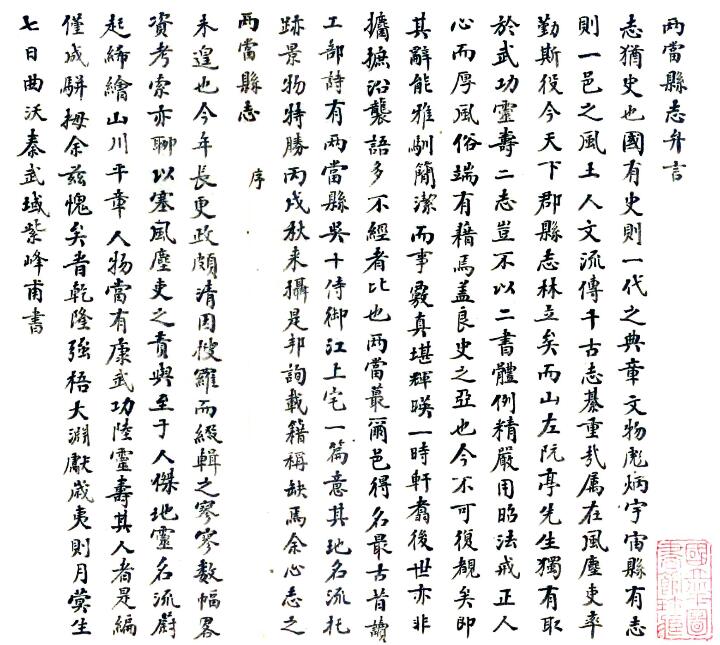 两當縣志弁言
志猶史也國有史則一代之典章文物彪炳宇宙縣有志
則一邑之風土人文流傳千古志綦重哉属在風塵吏率
勤斯役今天下郡縣志林立矣而山左阮亭先生獨有取
於武功靈壽二志豈不以二書體例精嚴用昭法戒正人
心而厚風俗端有藉焉盖良史之亞也今不可復覩矣即
其辭能雅馴簡潔而事覈真堪輝暎一時軒翥後世亦非
攟摭沿襲語多不經者比也两當蕞爾邑得名最古昔讀
工部詩有两當縣吳十侍御江上宅一篇意其地名流托
跡景物特勝丙戌秋来攝是邦詢載籍稱缺焉余心志之
两當縣志 序
未遑也今年長更政頗清因搜羅而綴輯之寥寥数幅畧
資考索亦聊以塞風塵吏之責與至于人傑地靈名流蔚
起締繪山川平章人物當有康武功陸靈壽其人者是編
僅成駢拇余茲愧矣旹乾隆强梧大淵獻歲夷則月蓂生
七日曲沃秦武域紫峰甫書